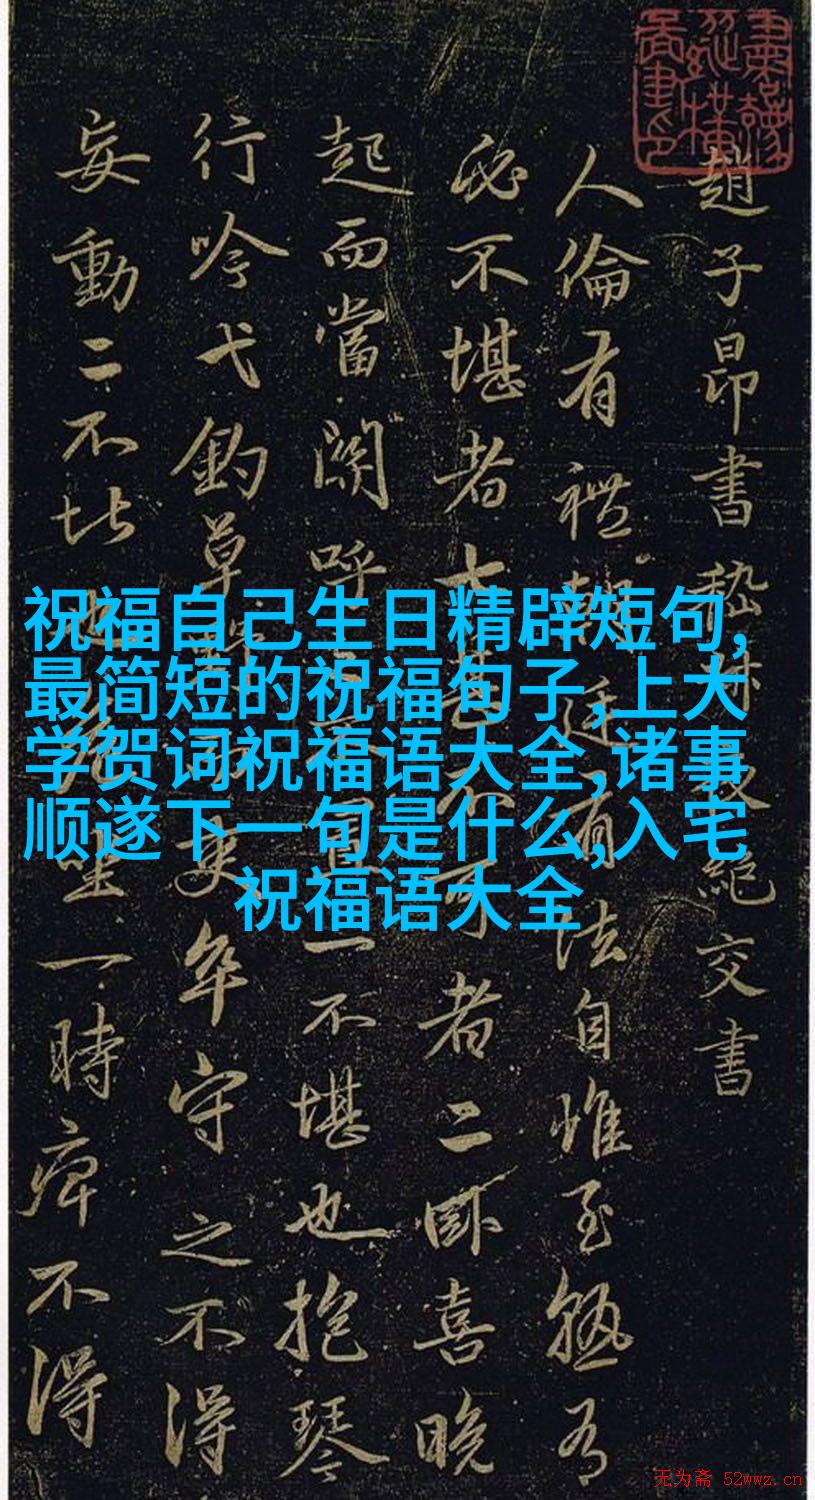 趙子昂書嵇叔夜絕交書
人倫有禮朝廷有法自惟至熟有
必不堪者七甚不可者二卧喜晚
起而當關呼之不置一不堪也抱琴
行吟弋釣草野而吏卒守之不得
妄動二不堪也危坐一時痺不得
祝福自己生日精辟短句,
最简短的祝福句子,上大
学贺词祝福语大全,诸事
顺遂下一句是什么,入宅
祝福语大全
无为斋 52wwz.cn